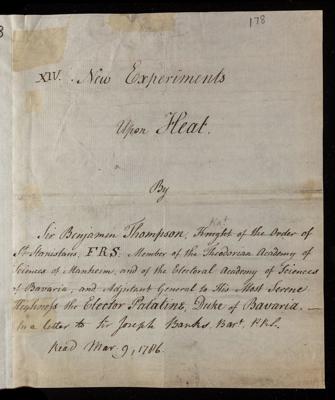 178
XIV. New Experiments
Upon Heat.
By
Sir Benjamin Thompson, Knight of the Order of
St Stanislaus, F.R.S. Member of the Theodorian Academy of
Sciences of Manheim, and of the Electoral Academy of Sciences
of Bavaria, and Adjutant General to His Most Serene
Highness the Elector Palatine, Duke of Bavaria. —
In a letter to Sir Joseph Banks, Bart. P.R.S.
Read Mar. 9, 1786.